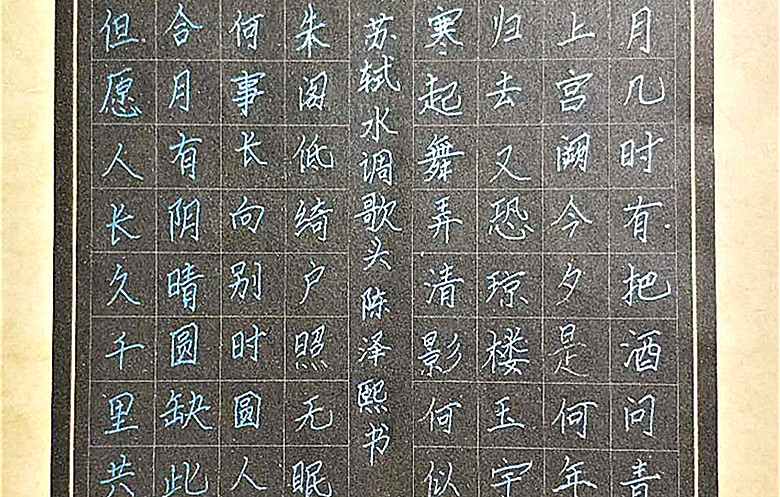 月几时有把酒问青
上宫阙今夕是何年
归去又恐琼楼玉宇
寒起舞弄清影何似
苏轼水调歌头陈泽熙书
朱阁低绮户照无眠
何事长向别时圆人
合月有阴晴圆缺此
但愿人长久千里共